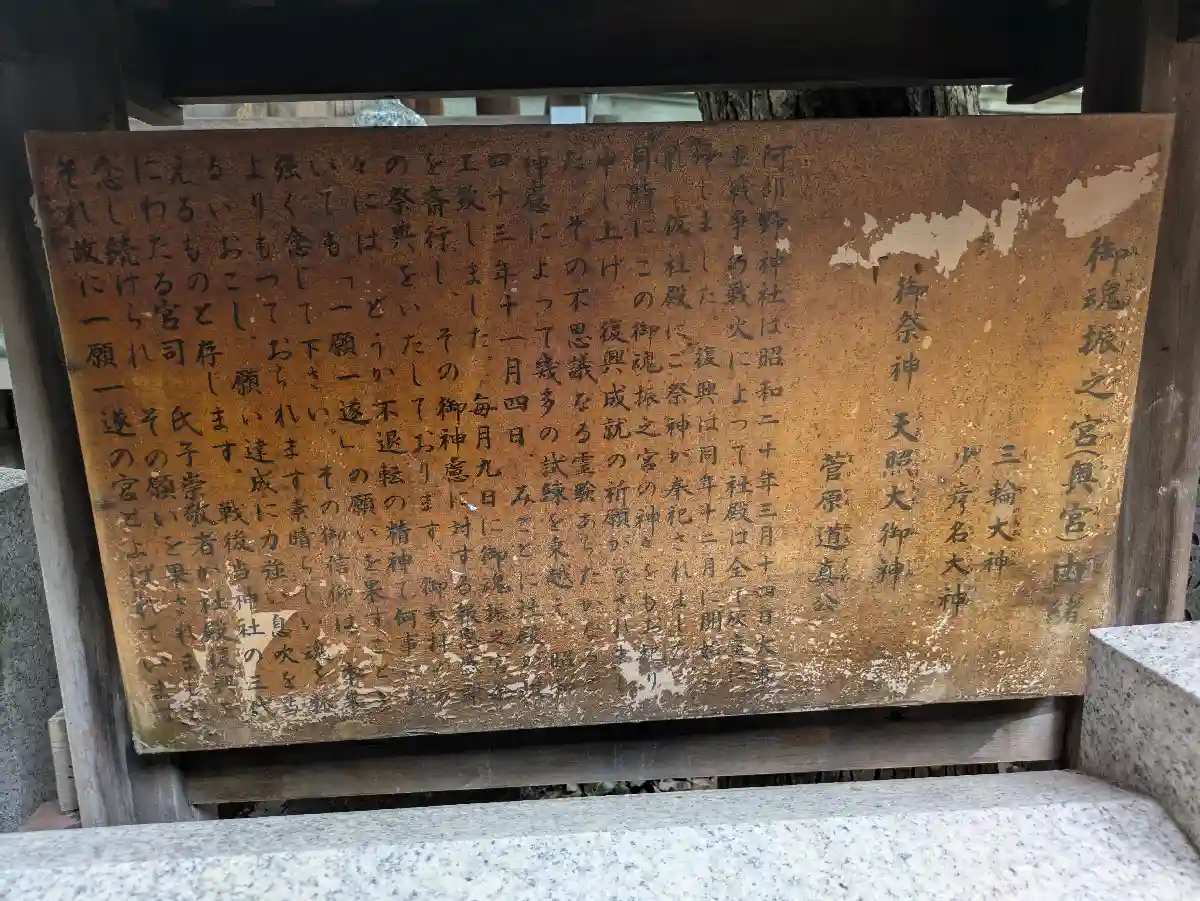 御魂振之宮(奥宮)由緒
三輪大神
少彦名大神
御祭神 天照大御神
菅原道真公
阿部野神社は昭和二十年三月十四日大東
亜戦争の戦火によって社殿は全
しました。復興は同年十二月に開始
仮社殿にご祭神が奉祀されました
同時にこの御魂振之宮の神々をもお祀り
申し上げ、復興成就の祈願がなされ
た。その不思議なる霊験あらたかなる
神慮によって幾多の試練を乗越え、昭
四十三年十一月四日、みごとに社殿が
工致しました。毎月九日に御魂振之
を斎行し、その御神慮に対する報恩感
の祭典をいたしております。御参拝の
々には、どうか不退転の精神で何事に
いても「一願一遂」の願いを果すこと
強く念じて下さい。その御信仰は、本来
よりもつておられます素晴らしい魂を振
るいおこし、願い達成に力強い息吹を与
えるものと存じます。戦後当神社の三代
にわたる宮司、氏子崇敬者が社殿復興
念し続けられ、その願いを果されまし
それ故に一願一遂の宮とよばれていま